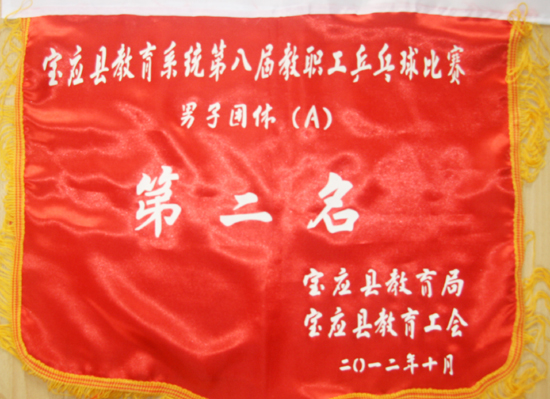 宝应县教育系统第八届教职工乒乓球比赛
男子团体（A）
第二名
宝应县教育局
宝应县教育工会
二〇一二年十月